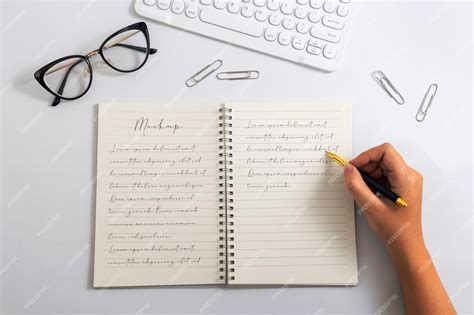 Mockup
Lorem ipsum dolor sit amet
consectetur adipiscing elit sed
do eiusmod tempor incididunt ut
labore et dolore magna aliqua
Quis ipsum suspendisse ul
trices gravida
lacus vel facilisis
Lorem ipsum dolor sit amet
consectetur adipiscing elit sed
Lorem ipsum dolor sit amet
consectetur adipiscing elit sed
do eiusmod tempor incididunt ut
labore et dolore magna aliqua
Quis ipsum suspendisse ul
trices gravida